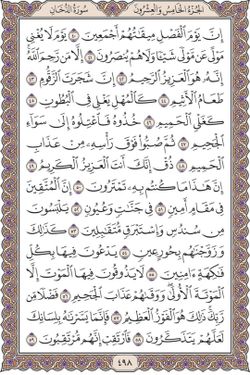 الجزء الخامس والعشرون سورة الدخان
إن يوم الفصل ميقاتهم أجمعين ٤٠ يوم لا يغني
مولى عن مولى شيئا ولا هم ينصرون ٤١ إلا من رحم الله
إنه هو العزيز الرحيم ٤٢ إن شجرت الزقوم ٤٣
طعام الأثيم ٤٤ كالمهل يغلي في البطون ٤٥
كغلي الحميم ٤٦ خذوه فاعتلوه إلى سواء
الجحيم ٤٧ ثم صبوا فوق رأسه من عذاب
الحميم ٤٨ ذق إنك أنت العزيز الكريم ٤٩
إن هذا ما كنتم به تمترون ٥٠ إن المتقين
في مقام أمين ٥١ في جنات وعيون ٥٢ يلبسون
من سندس وإستبرق متقابلين ٥٣ كذلك
وزوجناهم بحور عين ٥٤ يدعون فيها بكل
فاكهة آمنين ٥٥ لا يذوقون فيها الموت إلا
الموتة الأولى ووقاهم عذاب الجحيم ٥٦ فضلا من
ربك ذلك هو الفوز العظيم ٥٧ فإنما يسرناه بلسانك
لعلهم يتذكرون ٥٨ فارتقب إنهم مرتقبون ٥٩
٤٩٨